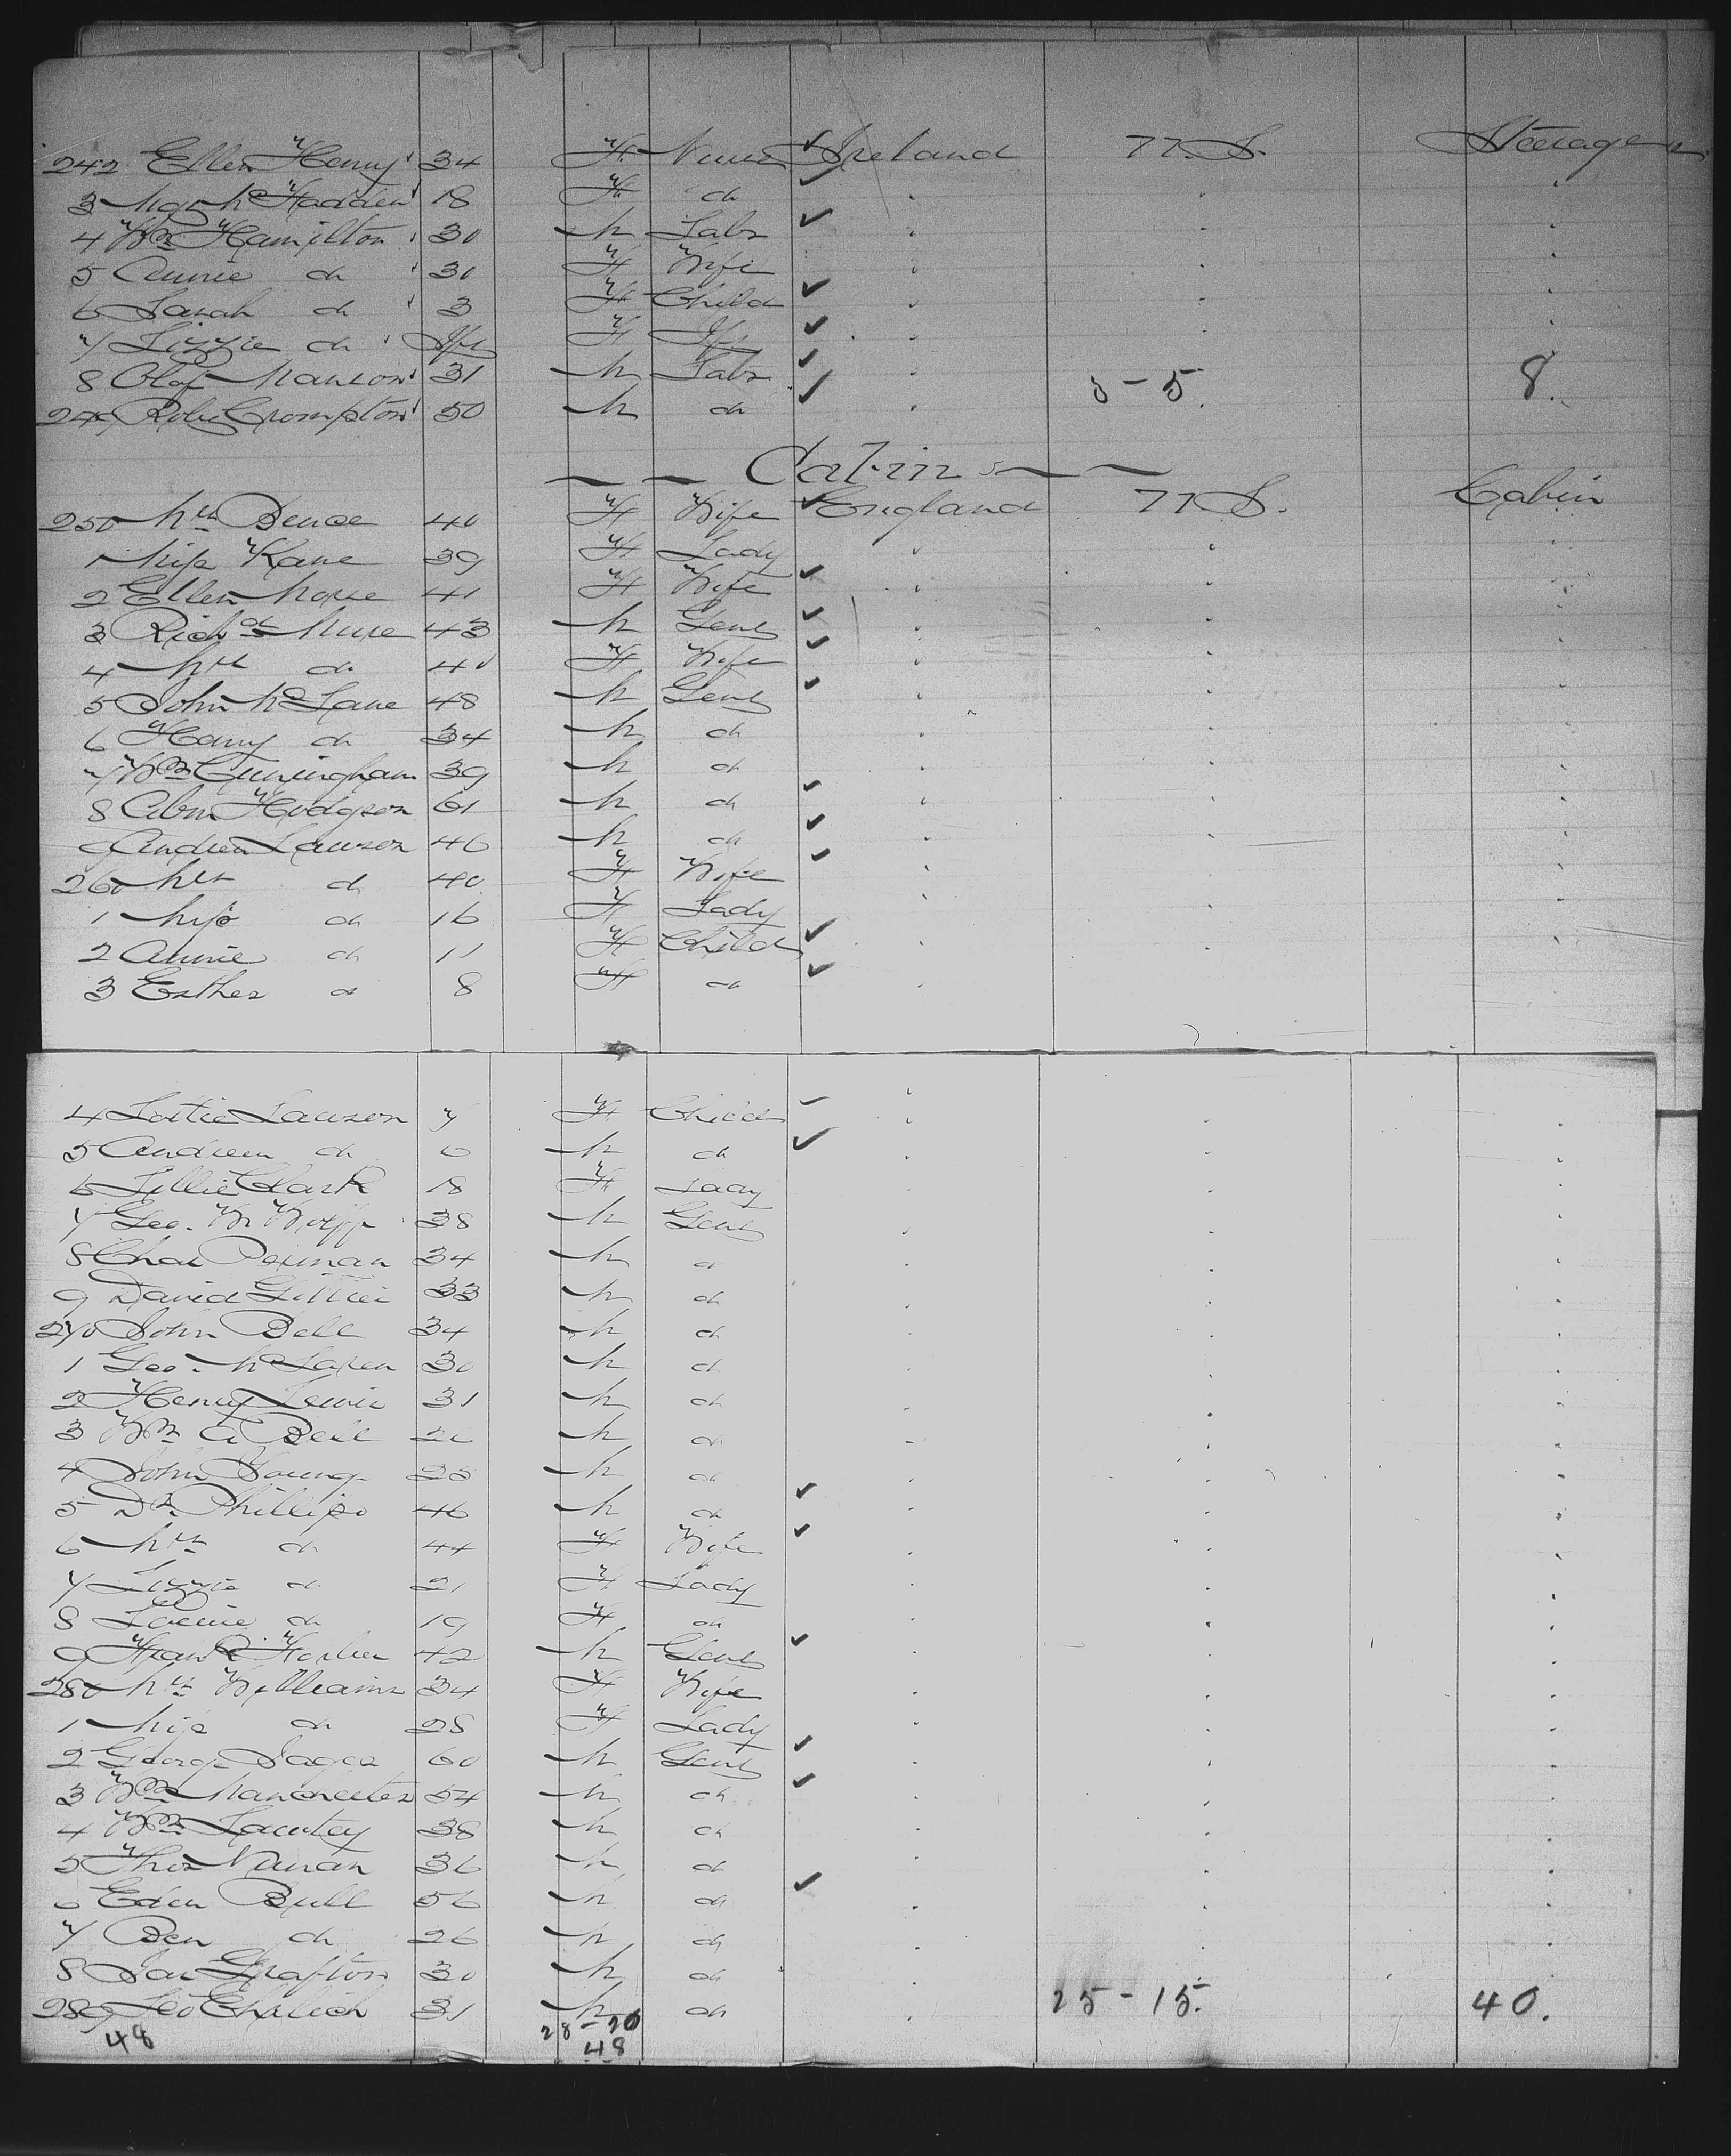 242 Ellen Henry 34 F Nurse Ireland U.S. Steerage
3 Mgt McFadden 18 F do
4 Wm Hamilton 30 M Labr
5 Annie do 30 F Wife
6 Sarah do 3 F Child
7 Lizzie do Inft F Inft
8 Olaf Manson 31 M Labr
249 Robt Crompton 50 M do 3-5. 8.
Cabin
250 Mrs Bence 40 F Wife England U.S. Cabin
1 Miss Kane 39 F Lady
2 Ellen 41 F Wife
3 Richd Muse 43 M Gent
4 Mrs do 40 F Wife
5 John McLane 48 M Gent
6 Harry do 34 M do
7 Wm Cuningham 39 M do
8 Abm Hodgson 61 M do
9 Andrew Lawson 46 M do
260 Mrs do 40 F Wife
1 Miss do 16 F Lady
2 Annie do 11 F Child
3 Esther do 8 F do
4 Lottie Lawson 7 F Child
5 Andrew do 6 M do
6 Lillie Clark 18 F Lady
7 Geo. W Wolff 38 M Gent
8 Chas 34 M do
9 David 33 M do
270 John Bell 34 M do
1 Geo. McLaren 30 M do
2 Henry Lewis 31 M do
3 Wm A Bell M do
4 John Young M do
5 Dr. Phillips 46 M do
6 Mrs do 44 F Wife
7 Lizzie do 21 F Lady
8 do 19 F do
9 Frank 42 M Gent
280 Mrs Williams 34 F Wife
1 Miss do 28 F Lady
2 George Sager 60 M Gent
3 Wm Manchester 54 M do
4 Wm 38 M do
5 Thos 36 M do
6 Eden Bull 56 M do
7 Ben do 26 M do
8 Grafton 30 M do
289 Leo Ehrlich 31 M do 25-15. 40.
48 28-20
48